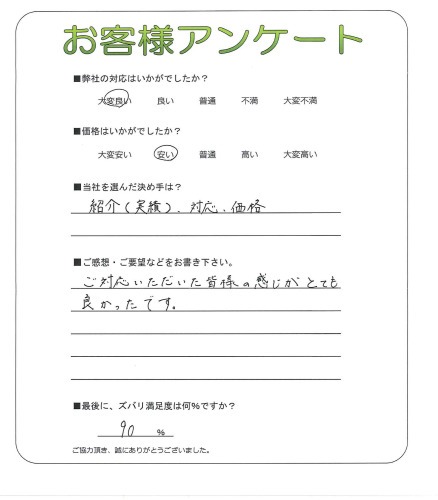 お客様アンケート
■弊社の対応はいかがでしたか？
大変良い 良い 普通 不満 大変不満
■価格はいかがでしたか？
大変安い 安い 普通 高い 大変高い
■当社を選んだ決め手は？
紹介（実績）、対応、価格
■ご感想・ご要望などをお書き下さい。
ご対応いただいた皆様の感じがとても
良かったです。
■最後に、ズバリ満足度は何％ですか？
90 ％
ご協力頂き、誠にありがとうございました。